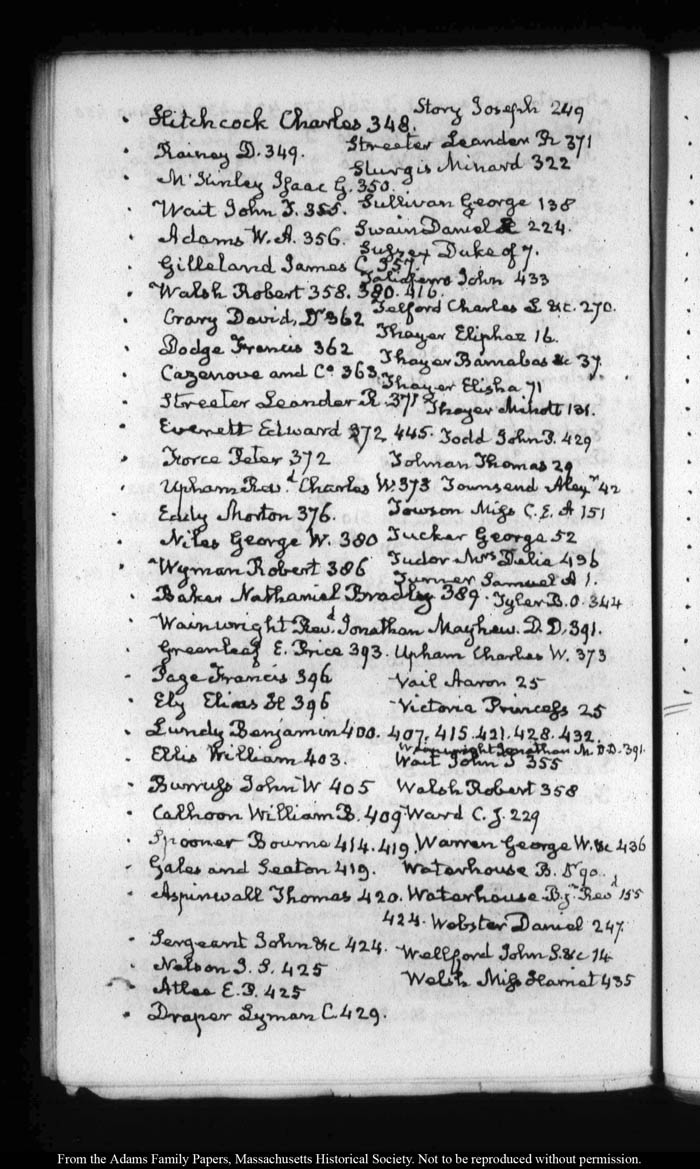 Hitchcock Charles 348.
Rainey D. 349.
McKinley Isaac G. 350.
Wait John T. 355.
Adams W. A. 356.
Gilleland James C. 357.
Walsh Robert 358. 380. 416.
Crary David, Dr 362
Dodge Francis 362
Cazenove and Co 363.
Streeter Leander R. 371
Everett Edward 372 445.
Force Peter 372
Upham Revd. Charles W. 373
Eddy Morton 376.
Niles George W. 380
Wyman Robert 386
Baker Nathaniel Bradley 389.
Wainwright Revd. Jonathan Mayhew. D. D. 391.
Greenleaf E. Price 393.
Page Francis 396
Ely Elias &c 396
Lundy Benjamin 400. 407. 415. 421. 428. 432.
Ellis William 403.
Burruss John W 405
Calhoon William B. 409
Spooner Bourne 414. 419.
Gales and Seaton 419.
Aspinwall Thomas 420.
424.
Sergeant John &c 424.
Nelson J. S. 425
Atlee E. P. 425
Draper Lyman C. 429.
Story Joseph 249
Streeter Leander R 371
Sturgis Minard 322
Sullivan George 138
Swain Daniel 224.
Sussex Duke of 7.
Taliaferro John 433
Telford Charles L &c. 270.
Thayer Eliphaz 16.
Thayer Barnabas &c 37.
Thayer Elisha 71
Thayer Minott 131.
Todd John P. 429
Tolman Thomas 29
Townsend Alexr 42
Towson Miss C. E. A 151
Tucker George 52
Tudor Mrs Delia 436
Turner Samuel A 1.
Tyler B. O. 344
Upham Charles W. 373
Vail Aaron 25
Victoria Princess 25
Wainwright Jonathan M. D. D. 391.
Wait John T 355
Walsh Robert 358
Ward C. J. 229
Warren George W. &c 436
Waterhouse B. Dr 90.
Waterhouse B. Jr Revd 155
Webster Daniel 247
Wellford John S. &c 14
Welsh Miss Harriet 435
From the Adams Family Papers, Massachusetts Historical Society. Not to be reproduced without permission.